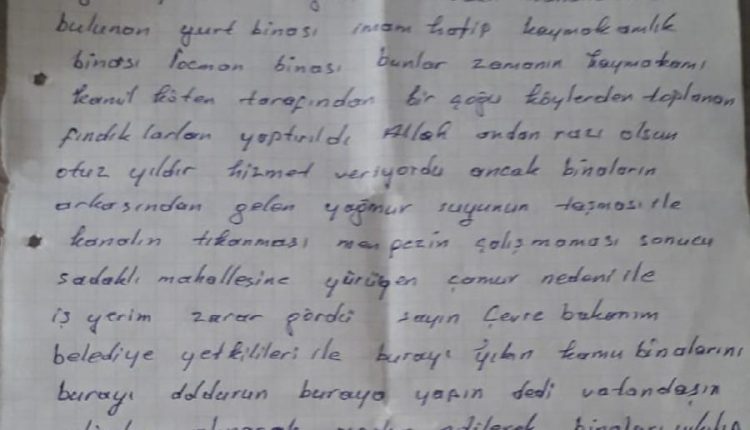 bulunan yurt binası imam hatip kaymakamlık
binası locman binası bunlar zamanın kaymakamı
kamil köten tarafından bir çoğu köylerden toplanan
fındıklarlan yaptırıldı Allah ondan razı olsun
otuz yıldır hizmet veriyordu ancak binaların
arkasından gelen yağmur suyunun taşması ile
kanalın tıkanması menpezin çalışmaması sonucu
sadaklı mahallesine yürüyen çamur nedeni ile
iş yerim zarar gördü sayın Çevre bakanım
belediye yetkilileri ile burayı yıkın kamu binalarını
burayı dddurun buraya yapın dedi vatandaşın
edilerek binaları